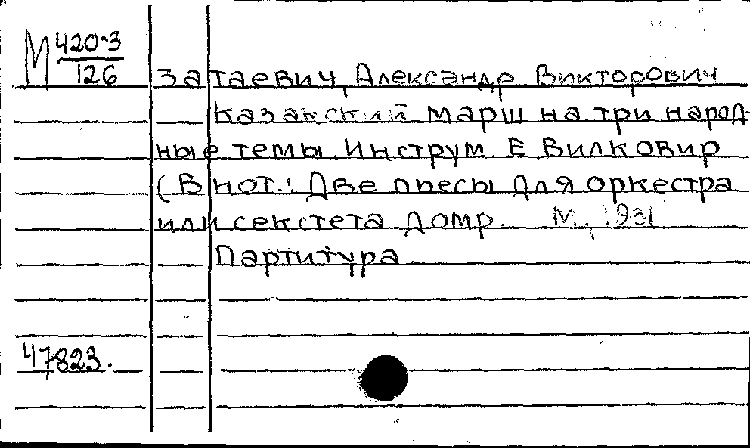 М 420-3
126
Затаевич, Александр Викторович
Казакский марш на три народ-
ные темы. Инструм Е Вилковир
(В нот.: Две пьесы для оркестра
или секстета домр. М, 1931
Партитура
47823.